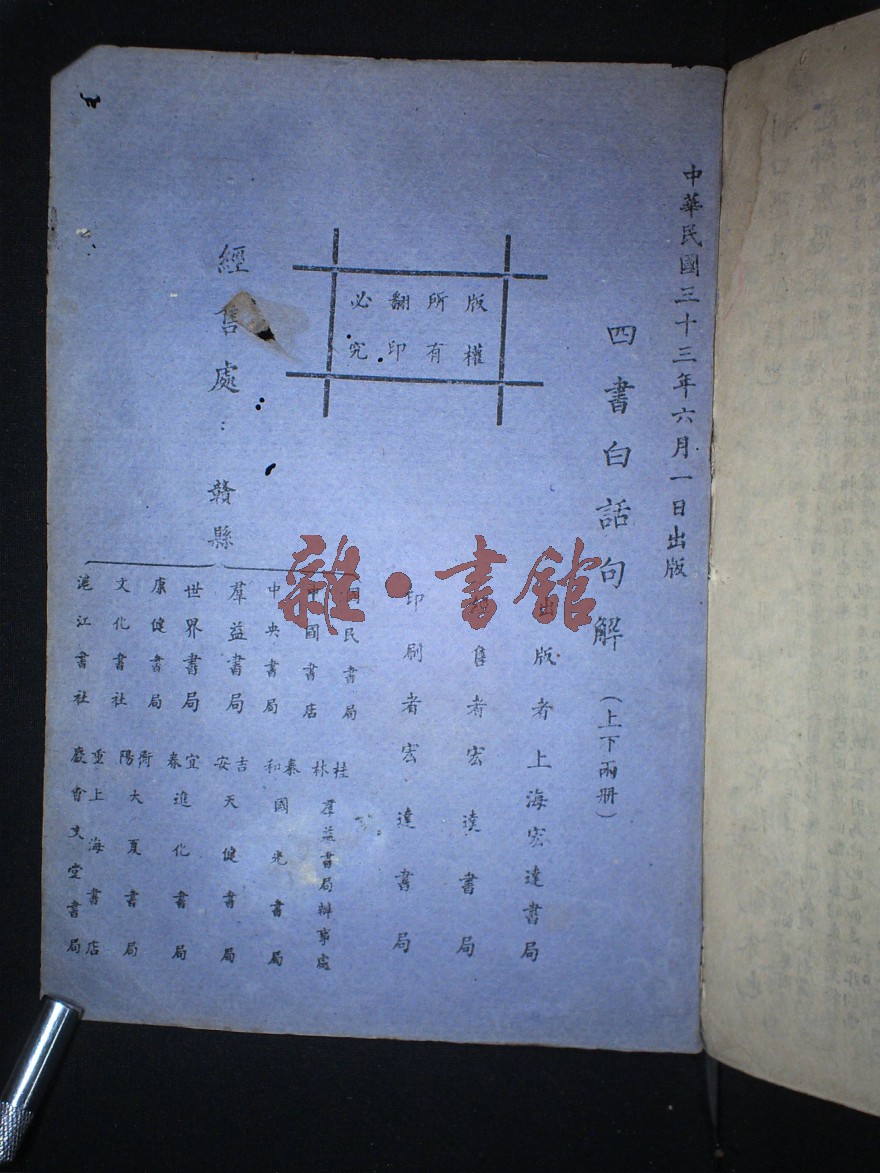 中華民國三十三年六月一日出版
四書白話句解（上下兩册）
出版者上海宏達書局
售者宏達書局
印刷者宏達書局
版權
所有
翻印
必究
經售處：贛縣
國民書局
中國書店
中央書局
羣益書局
世界書局
康健書局
文化書社
滬江書社
桂林羣益書局辦事處
泰和國光書局
吉安天健書局
宜春進化書局
衡陽大夏書局
重慶上海書店
文堂書局
雜·書館